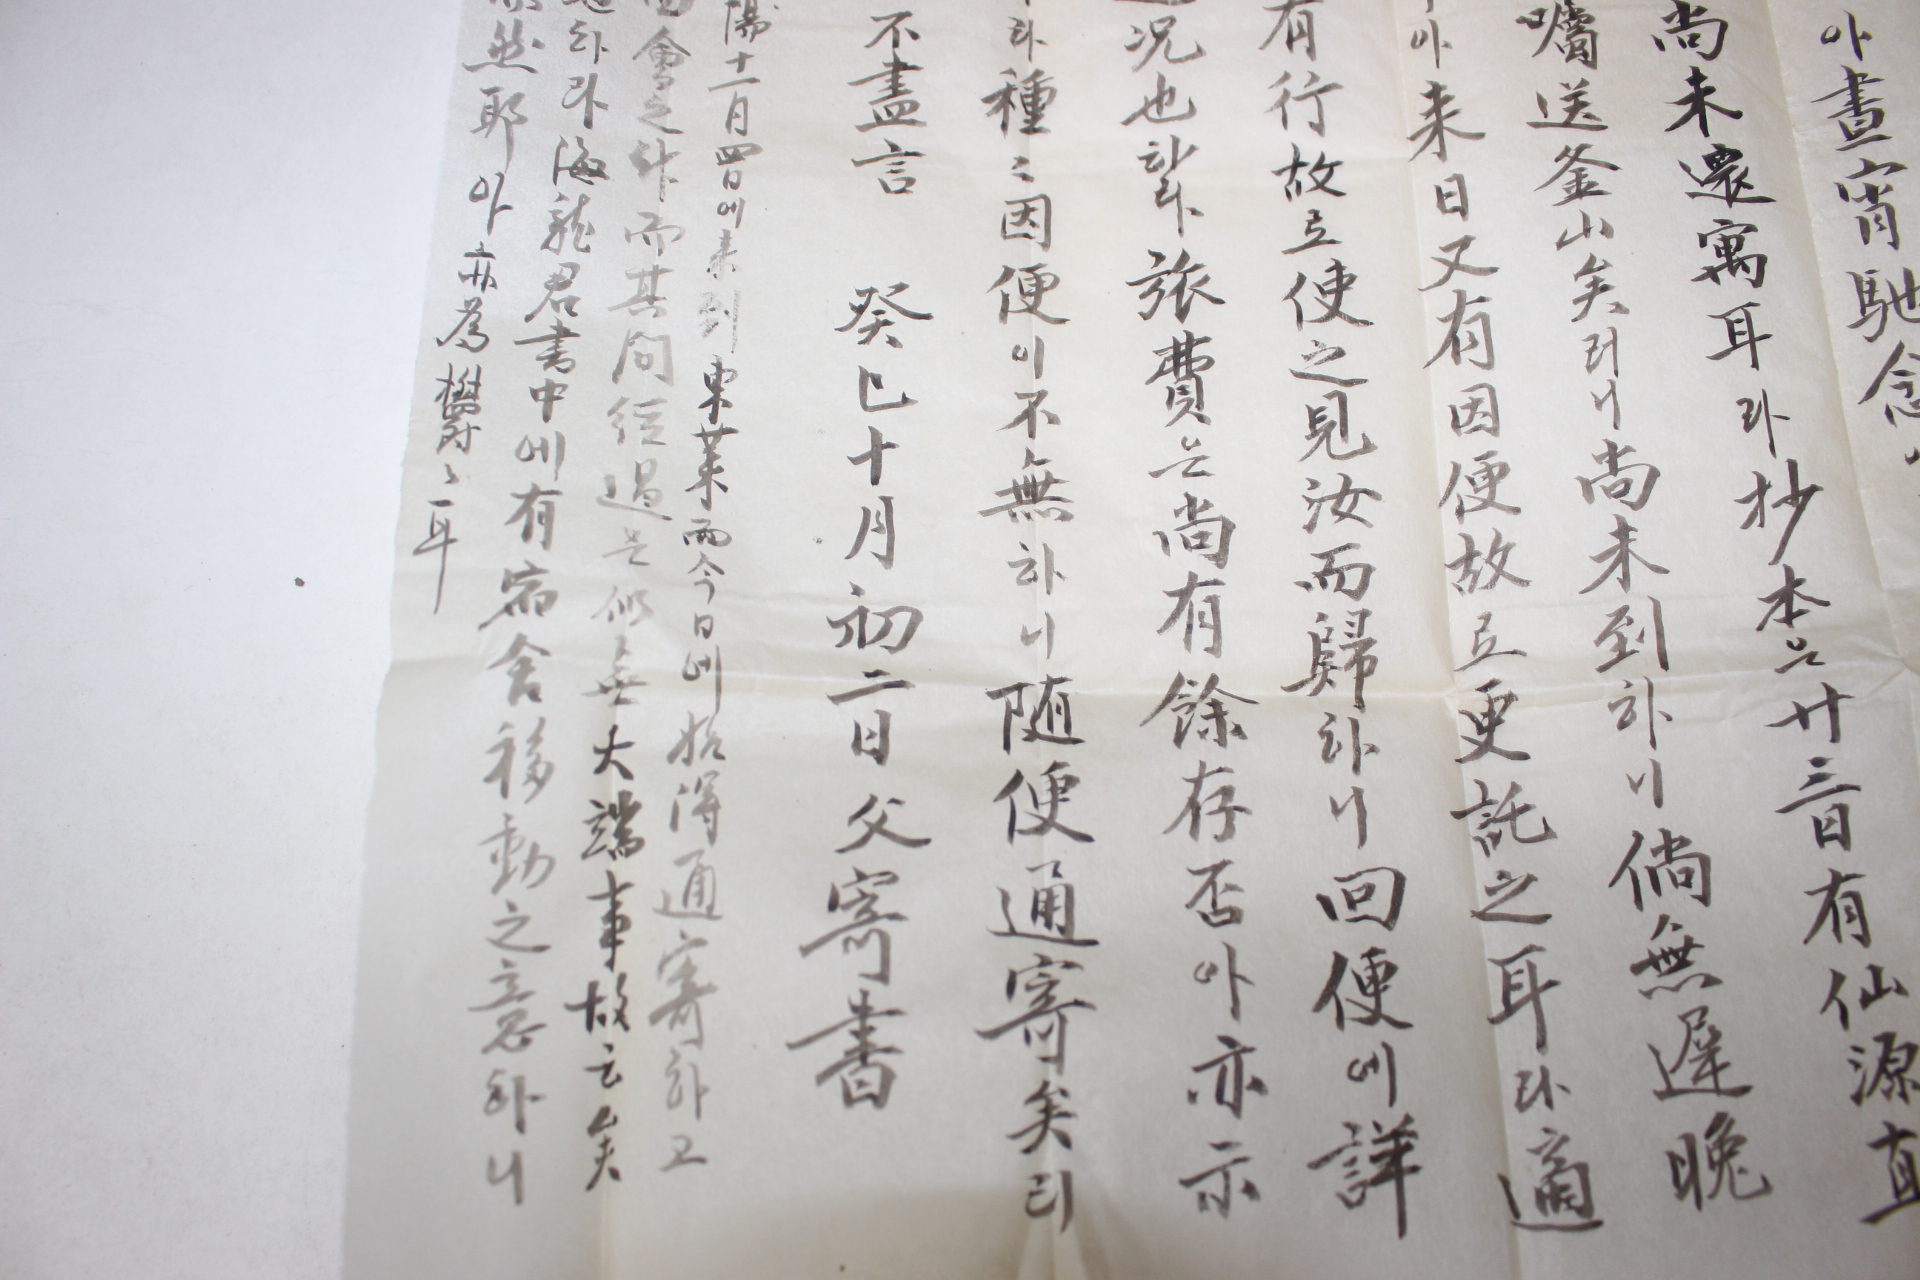 아 晝宵馳念
尙未還寓耳라 抄本은 廿三日有仙源直
囑送釜山矣러니 尙未到하니 倘無遲晩
아 来日又有因便故로 更託之耳라 適
有行故로 使之見汝而歸하니 回便에 詳
況也하라 旅費은 尙有餘存否아 亦示
라 種〻因便이 不無하니 随便通寄矣리
不盡言 癸巳十月初二日 父寄書
陽十一月四日에 来到東莱而今日에 始得通寄하고
會之外而其间經過은 似無大端事故云矣
하라 海龍君書中에 有宿舍移動之意하니
然耶아 亦爲鬱〻耳